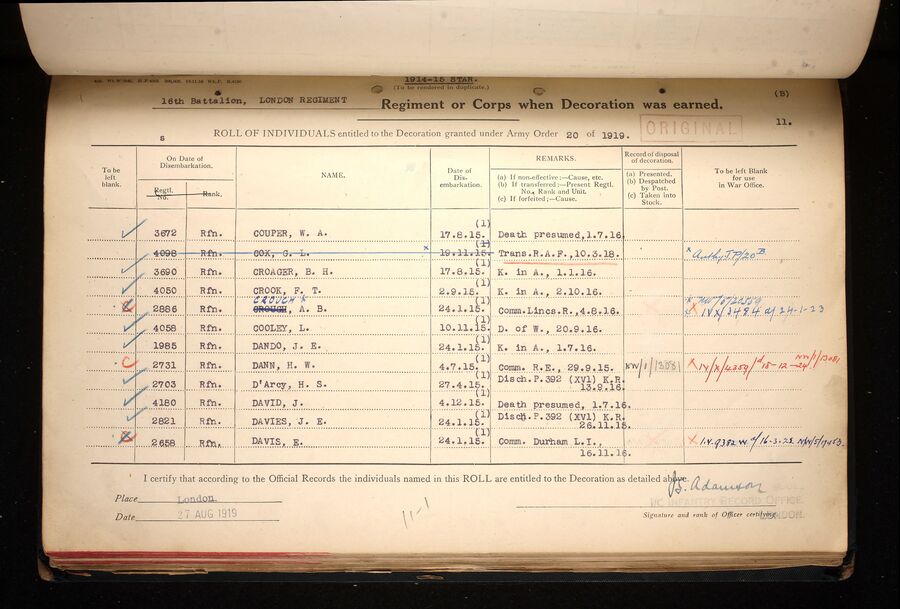 1914-15 STAR.
(To be rendered in duplicate.)
16th Battalion, LONDON REGIMENT Regiment or Corps when Decoration was earned. (B)
11.
S ROLL OF INDIVIDUALS entitled to the Decoration granted under Army Order 20 of 1919. ORIGINAL
To be left blank.
On Date of Disembarkation.
Regtl. No. Rank.
NAME.
Date of Disembarkation.
REMARKS.
(a) If non-effective:—Cause, etc.
(b) If transferred:—Present Regtl. No., Rank and Unit.
(c) If forfeited;—Cause.
Record of disposal of decoration.
(a) Presented.
(b) Despatched by Post.
(c) Taken into Stock.
To be left Blank for use in War Office.
3672 Rfn. COUPER, W. A. (1) 17.8.15. Death presumed,1.7.16.
4098 Rfn. COX, G. L. x (1) 19.11.15. Trans.R.A.F.,10.3.18.
3690 Rfn. CROAGER, B. H. (1) 17.8.15. K. in A., 1.1.16.
4050 Rfn. CROOK, F. T. (1) 2.9.15. K. in A., 2.10.16.
CROUCH x
2886 Rfn. CROUGH, A. B. (1) 24.1.15. Comm.Lincs.R.,4.8.16. x IV/X/3484 d/ 24-1-23
4058 Rfn. COOLEY, L. (1) 10.11.15. D. of W., 20.9.16.
1985 Rfn. DANDO, J. E. (1) 24.1.15. K. in A., 1.7.16.
C 2731 Rfn. DANN, H. W. (1) 4.7.15. Comm. R.E., 29.9.15. NW/1/13081 x IV/X/4259/d 15-12-24 NW/1/13081
2703 Rfn. D'Arcy, H. S. (1) 27.4.15. Disch.P.392 (XVl) K.R. 13.9.16.
4180 Rfn. DAVID, J. (1) 4.12.15. Death presumed, 1.7.16.
2821 Rfn. DAVIES, J. E. (1) 24.1.15. Disch.P.392 (XVl) K.R. 26.11.15.
2658 Rfn. DAVIS, E. (1) 24.1.15. Comm. Durham L.I., 16.11.16.
I certify that according to the Official Records the individuals named in this ROLL are entitled to the Decoration as detailed above.
Place London.
Date 27 AUG 1919
11-1
INFANTRY RECORD OFFICE
LONDON.
Signature and rank of Officer certifying